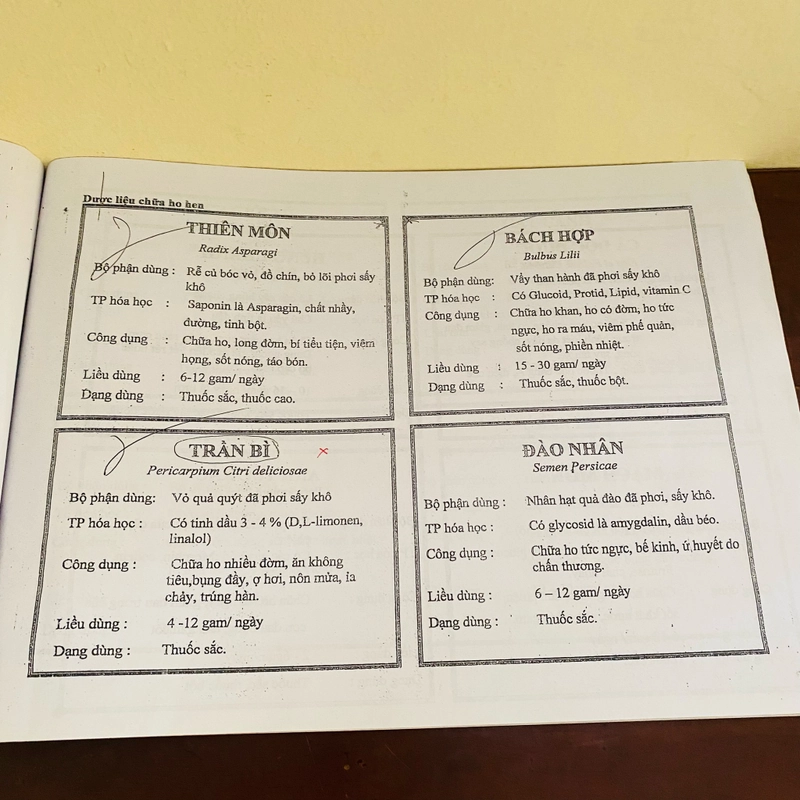 Dược liệu chữa ho hen
THIÊN MÔN
Radix Asparagi
Bộ phận dùng : Rễ củ bóc vỏ, đồ chín, bỏ lõi phơi sấy
khô
TP hóa học : Saponin là Asparagin, chất nhầy,
đường, tinh bột.
Công dụng : Chữa ho, long đờm, bí tiểu tiện, viêm
họng, sốt nóng, táo bón.
Liều dùng : 6-12 gam/ ngày
Dạng dùng : Thuốc sắc, thuốc cao.
BÁCH HỢP
Bulbus Lilii
Bộ phận dùng: Vẩy than hành đã phơi sấy khô
TP hóa học : Có Glucoid, Protid, Lipid, vitamin C
Công dụng : Chữa ho khan, ho có đờm, ho tức
ngực, ho ra máu, viêm phế quản,
sốt nóng, phiền nhiệt.
Liều dùng : 15 - 30 gam/ ngày
Dạng dùng : Thuốc sắc, thuốc bột.
TRẦN BÌ
Pericarpium Citri deliciosae
Bộ phận dùng: Vỏ quả quýt đã phơi sấy khô
TP hóa học : Có tinh dầu 3 - 4 % (D,L-limonen,
linalol)
Công dụng : Chữa ho nhiều đờm, ăn không
tiêu,bụng đầy, ợ hơi, nôn mửa, ỉa
chảy, trúng hàn.
Liều dùng : 4 -12 gam/ ngày
Dạng dùng : Thuốc sắc.
ĐÀO NHÂN
Semen Persicae
Bộ phận dùng : Nhân hạt quả đào đã phơi, sấy khô.
TP hóa học : Có glycosid là amygdalin, dầu béo.
Công dụng : Chữa ho tức ngực, bế kinh, ứ huyết do
chấn thương.
Liều dùng : 6 – 12 gam/ ngày
Dạng dùng : Thuốc sắc.